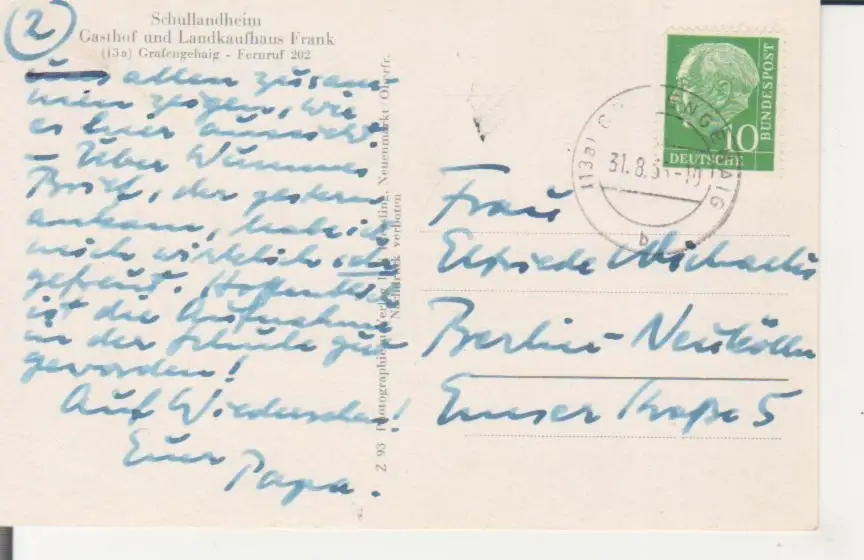 2
Schullandheim
Gasthof und Landkaufhaus Frank
(13a) Grafengehaig - Fernruf 202
allen zusam-
men zeigen, wie
es hier aussieht.
- Über
Brief, der gestern
ankam, hab ich
mich wirklich sehr
gefreut. Hoffentlich
ist die Aufnahme
in der Schule gut
geworden!
Auf Wiedersehen!
Euer Papa.
Z 93 Neuenmarkt/Oberfr.
Nachdruck verboten
10
DEUTSCHE
BUNDESPOST
(13a)
31.8.
b
Frau
Elfriede Michaelis
Berlin-Neukölln
Emser Straße 5